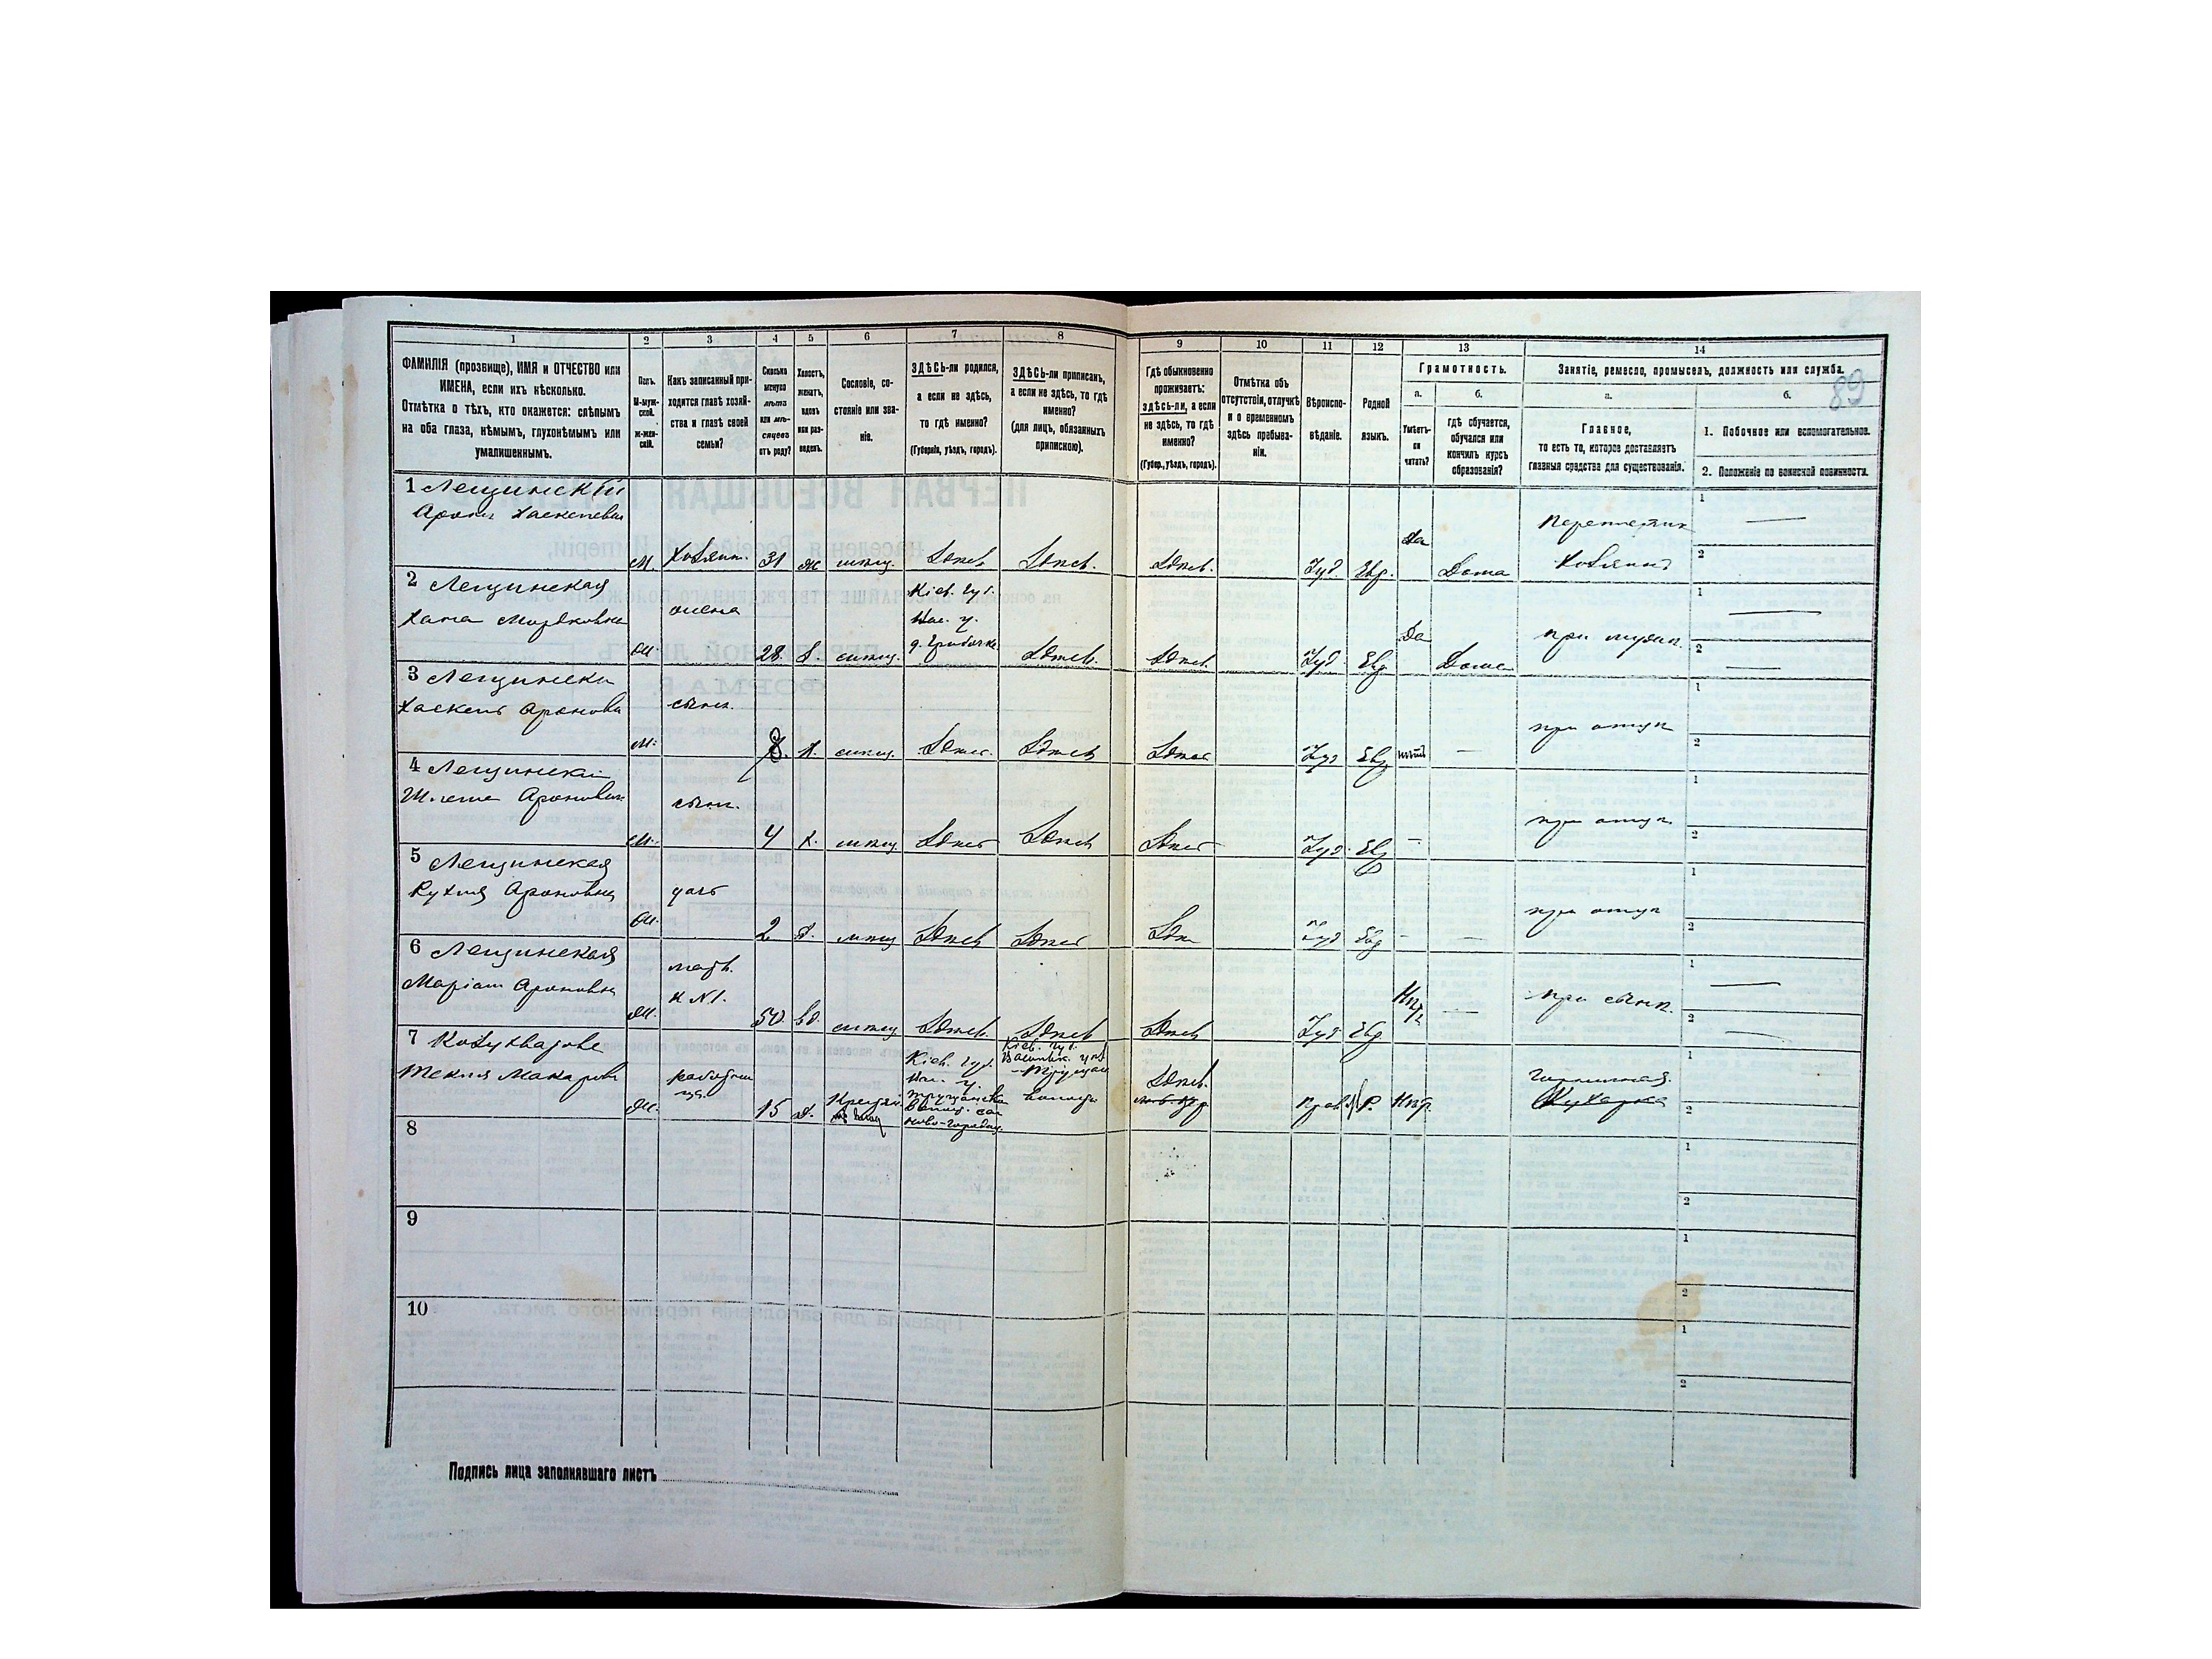 1 2 3 4 5 6 7 8 9 10 11 12 13 14
ФАМИЛІЯ (прозвище), ИМЯ и ОТЧЕСТВО или
ИМЕНА, если ихъ нѣсколько.
Отмѣтка о тѣхъ, кто окажется: слѣпымъ
на оба глаза, нѣмымъ, глухонѣмымъ или
умалишеннымъ.
Полъ.
М-муж-
ской.
ж-жен-
скій.
Какъ записанный при-
ходится главѣ хозяй-
ства и главѣ своей
семьи?
Сколько
минуло
лѣтъ
или мѣ-
сяцевъ
отъ роду?
Холостъ,
женатъ,
вдовъ
или раз-
веденъ.
Сословіе, со-
стояніе или зва-
ніе.
ЗДѢСЬ-ли родился,
а если не здѣсь,
то гдѣ именно?
(Губернія, уѣздъ, городъ).
ЗДѢСЬ-ли приписанъ,
а если не здѣсь, то гдѣ
именно?
(для лицъ, обязанныхъ
припискою).
Гдѣ обыкновенно
проживаетъ:
здѣсь-ли, а если
не здѣсь, то гдѣ
именно?
(Губер., уѣздъ, городъ).
Отмѣтка объ
отсутствіи, отлучкѣ
и о временномъ
здѣсь пребыва-
ніи.
Вѣроиспо-
вѣданіе.
Родной
языкъ.
Грамотность.
а.
Умѣетъ-
ли
читать?
б.
гдѣ обучается,
обучался или
кончилъ курсъ
образованія?
Занятіе, ремесло, промыселъ, должность или служба.
89
а.
Главное,
то есть то, которое доставляетъ
главныя средства для существованія.
б.
1. Побочное или вспомогательное.
2. Положеніе по воинской повинности.
1 Лещинскій
Аронъ Хаскелевич
М. Хозяин. 31 ж мѣщ. Здѣсь Здѣсь. Здѣсь. Іуд. Евр. Да Дома
Переплетчик
Хозяинъ
1
2
2 Лещинская
Хана Мордковна
жена
Ж. 28. З. мѣщ.
Кіев. губ.
Вас. у.
Здѣсь. Здѣсь. Іуд. Евр Да Дома при муже.
1
2
3 Лещински
Хаскель Аронови
сынъ.
М. 8. Х. мѣщ. Здѣсь. Здѣсь Здѣсь Іуд Евр нѣтъ — при отцѣ
1
2
4 Лещинскі
Шлема Аронович
сынъ.
М. 4 х. мѣщ Здѣсь Здѣсь Здѣсь Іуд. Евр — при отцѣ
1
2
5 Лещинская
Рухля Ароновна
дочь
Ж. 2 Д. мѣщ Здѣсь Здѣсь Здѣ Іуд Евр — — при отцѣ
1
2
6 Лещинская
Маріам Ароновна
мать.
к № 1.
Ж. 50 вд. мѣщ Здѣсь. Здѣсь Здѣсь Іуд Евр — при сынѣ.
1
2
7
Текля Макаров
работни
ца.
Ж. 15 Д. Крестьян.
Кіев. губ.
Вас. у.
Кіев. губ.
Васильк. у
волости
Здѣсь.
Прав Р. Нѣт.
горничная.
Кухарка
1
2
8
1
2
9
1
2
10
1
2
Подпись лица заполнявшаго листъ